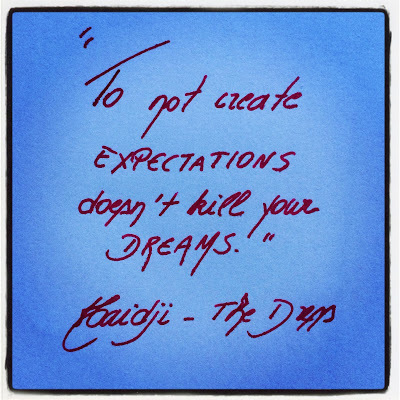 "To not create
EXPECTATIONS
doesn't kill your
DREAMS."
Haidji - The